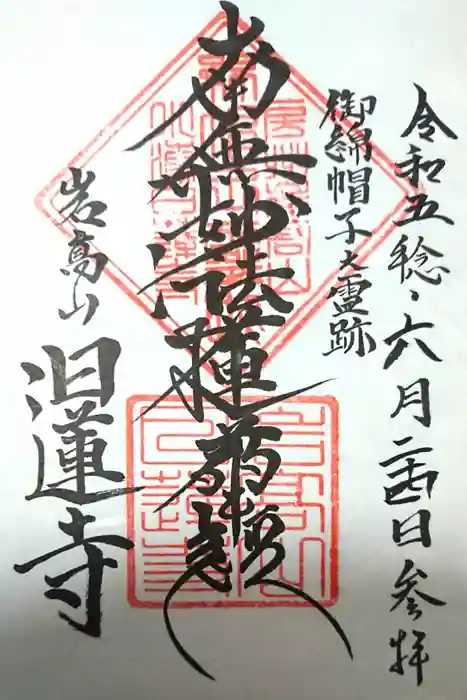 令和五稔・六月二十四日参拝
御綿帽子大霊跡
南無妙法蓮華経
岩高山
日蓮寺